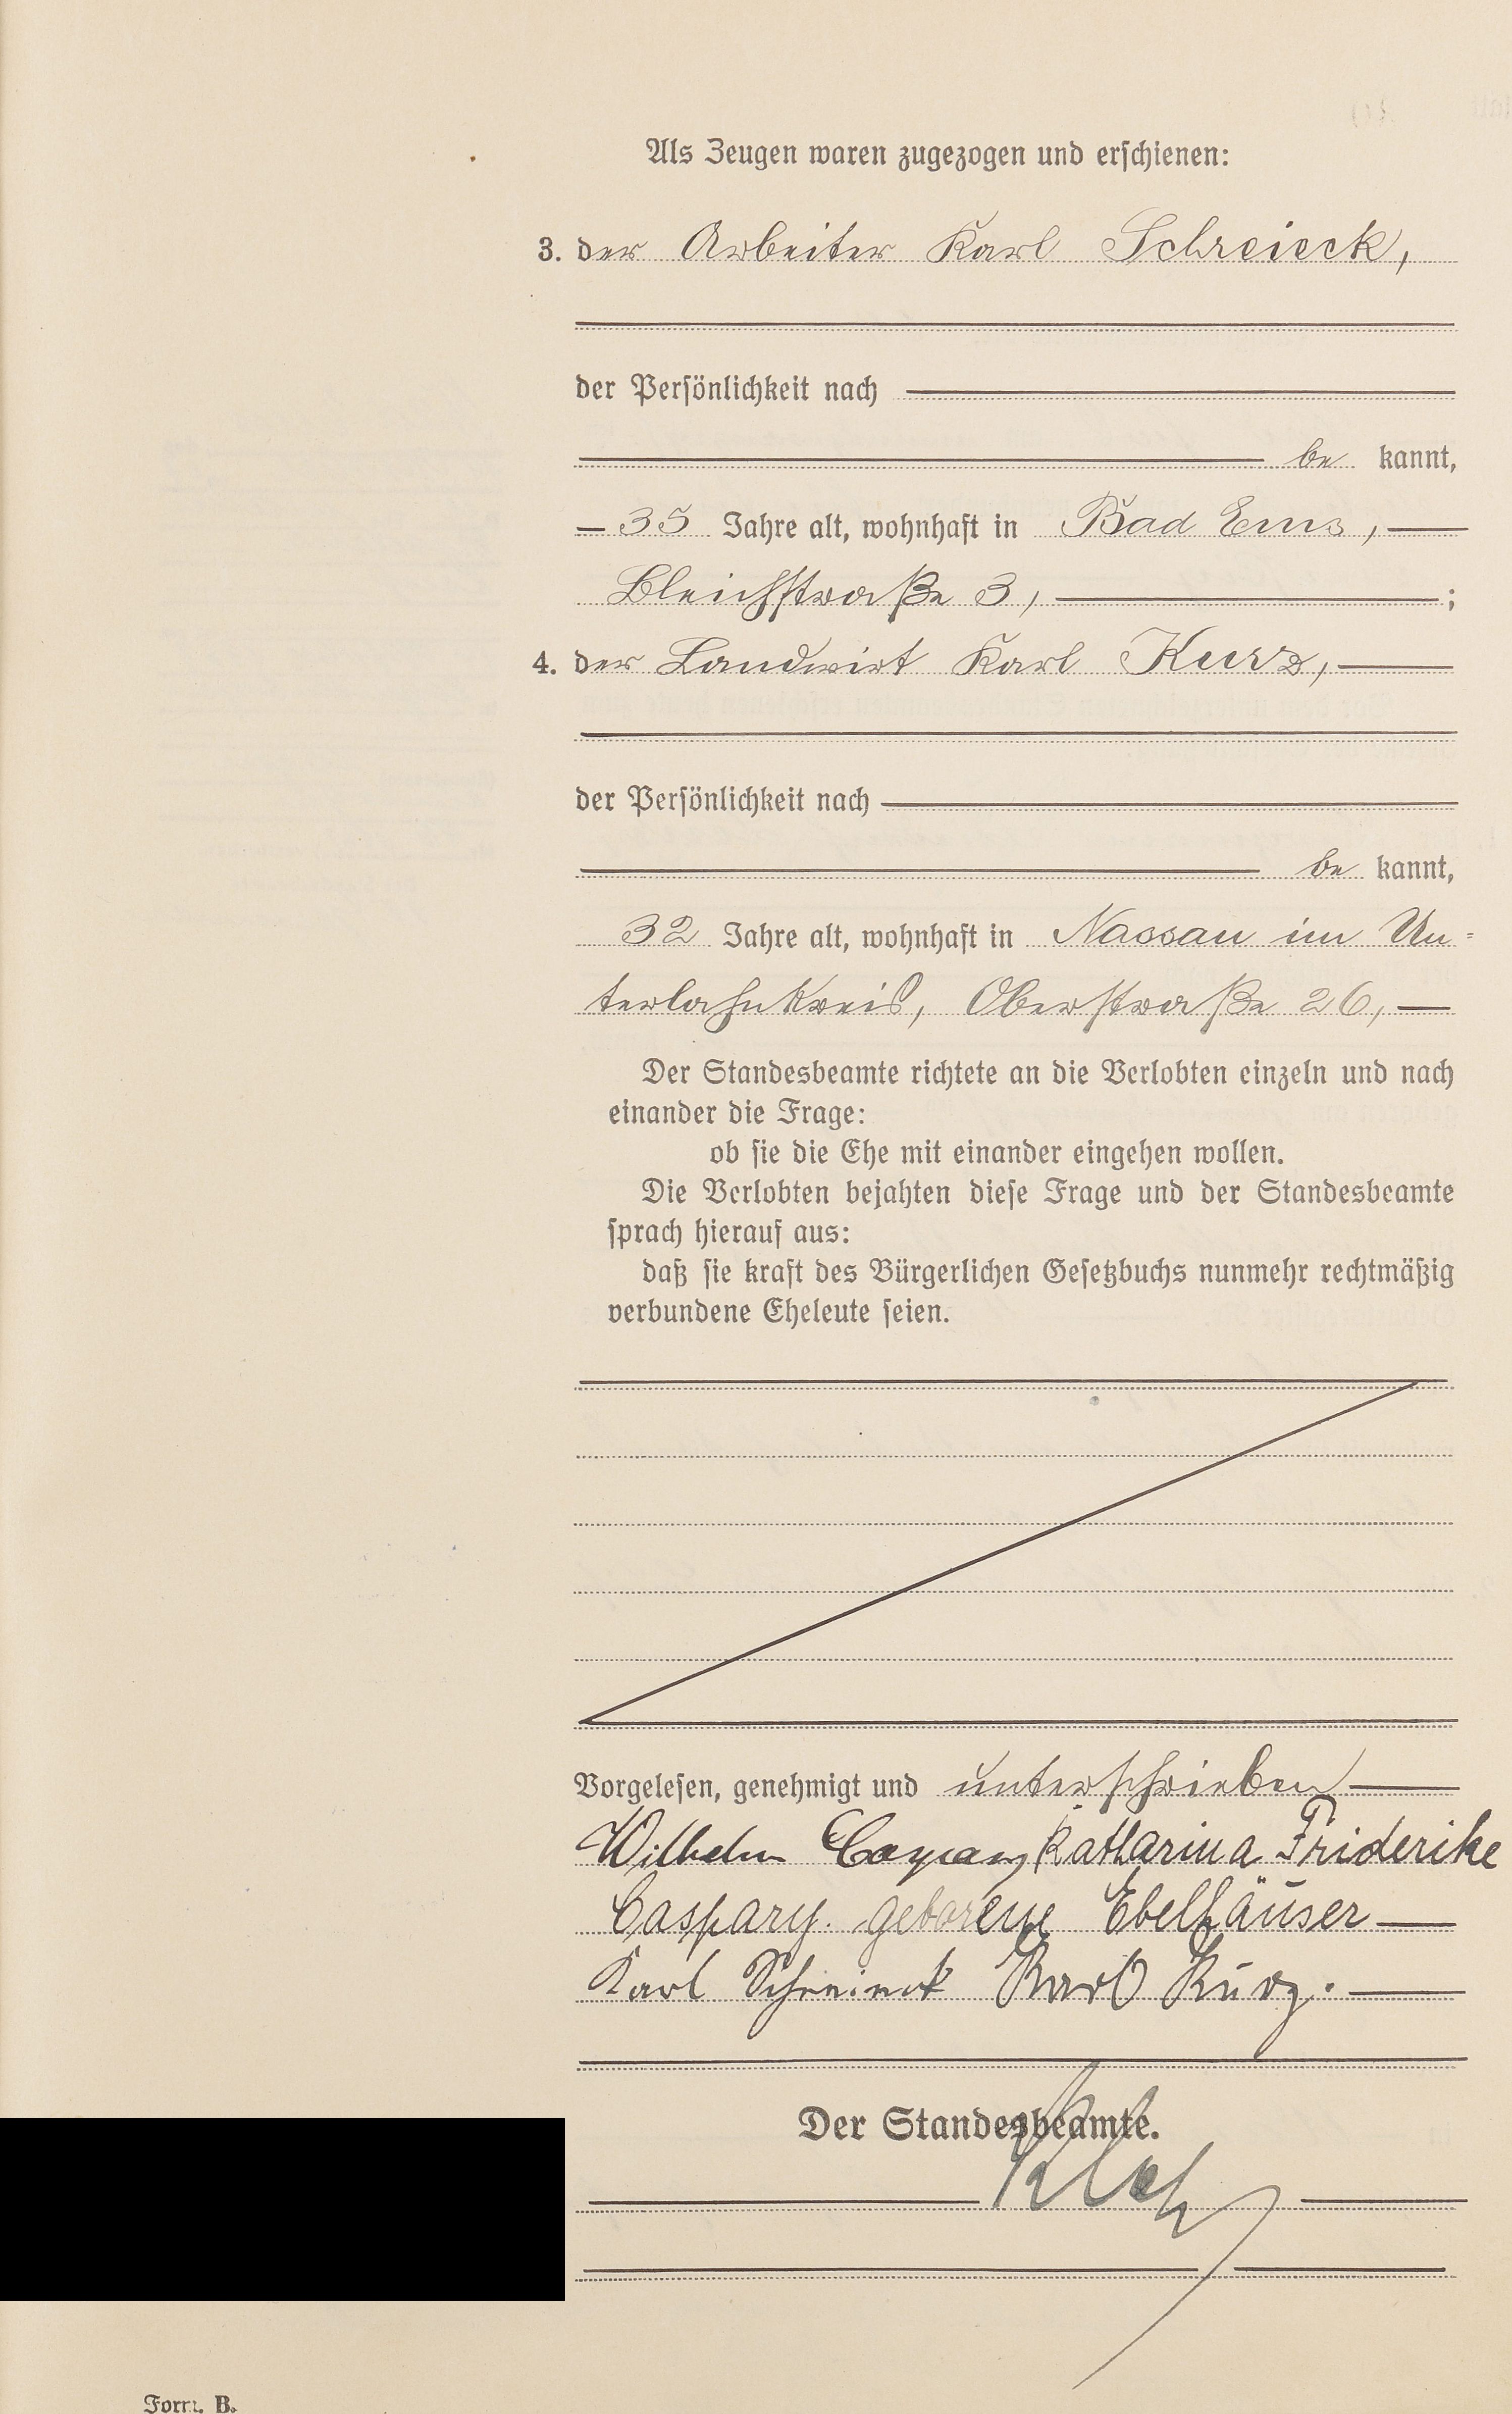 Als Zeugen waren zugezogen und erschienen:
3. der Arbeiter Karl Schreieck,
der Persönlichkeit nach
be kannt,
35 Jahre alt, wohnhaft in Bad Ems,
Bleichstraße 3, ;
4. der Landwirt Karl Kurz,
der Persönlichkeit nach
be kannt,
32 Jahre alt, wohnhaft in Nassau im Un=
terlahnkreis, Oberstraße 26,
Der Standesbeamte richtete an die Verlobten einzeln und nach
einander die Frage:
ob sie die Ehe mit einander eingehen wollen.
Die Verlobten bejahten diese Frage und der Standesbeamte
sprach hierauf aus:
daß sie kraft des Bürgerlichen Gesetzbuchs nunmehr rechtmäßig
verbundene Eheleute seien.
Vorgelesen, genehmigt und unterschrieben
Wilhelm Caspary Katharina Friderike
Caspary. geborene Ebelhäuser
Karl Schreieck Karl Kurz.
Der Standesbeamte.
Form. B.